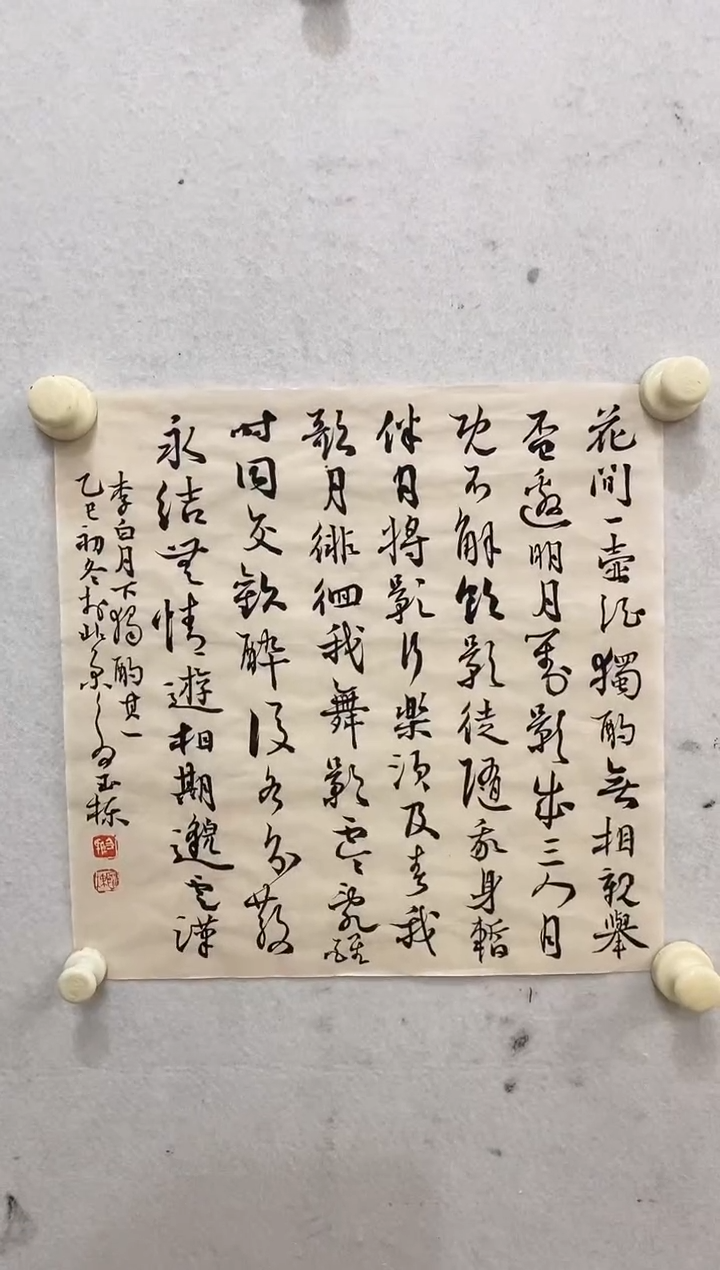 花間一壺酒獨酌無相親舉
杯邀明月對影成三人月
既不解飲影徒随我身暫
伴月將影行樂須及春我
歌月徘徊我舞影零亂醒
时同交歡醉後各分散
永結無情遊相期邈雲漢
李白月下獨酌其一
乙巳初冬於北京
玉栋